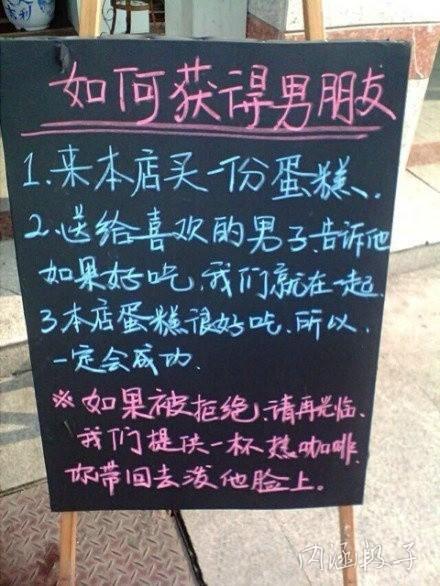 如何获得男朋友
1.来本店买一份蛋糕.
2.送给喜欢的男子.告诉他
如果好吃.我们就在一起.
3.本店蛋糕很好吃.所以.
一定会成功.
※如果被拒绝.请再光临.
我们提供一杯热咖啡.
你带回去泼他脸上.
内涵段子